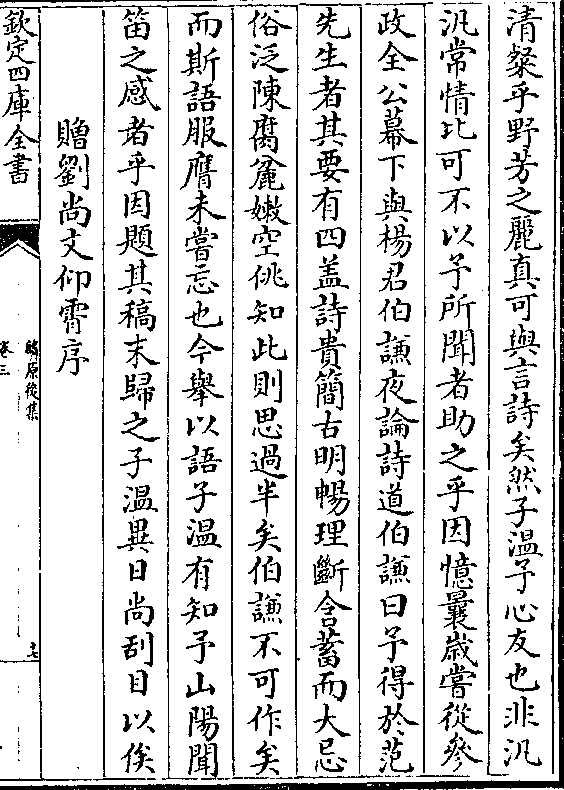 清粲乎野芳之麗真可與言詩矣然子溫予心友也非汎
汎常情比可不以予所聞者助之乎因憶曩歲嘗從參
政全公幕下與楊君伯謙夜論詩道伯謙曰予得於范
先生者其要有四盖詩貴簡古明暢理斷含蓄而大忌
俗泛陳腐麄嫩空佻知此則思過半矣伯謙不可作矣
而斯語服膺未嘗忘也今舉以語子溫有知予山陽聞
笛之感者乎因題其稿末歸之子溫異日尚刮目以俟
贈劉尚文仰霄序
欽定四庫全書
麟原後集
卷三
十七